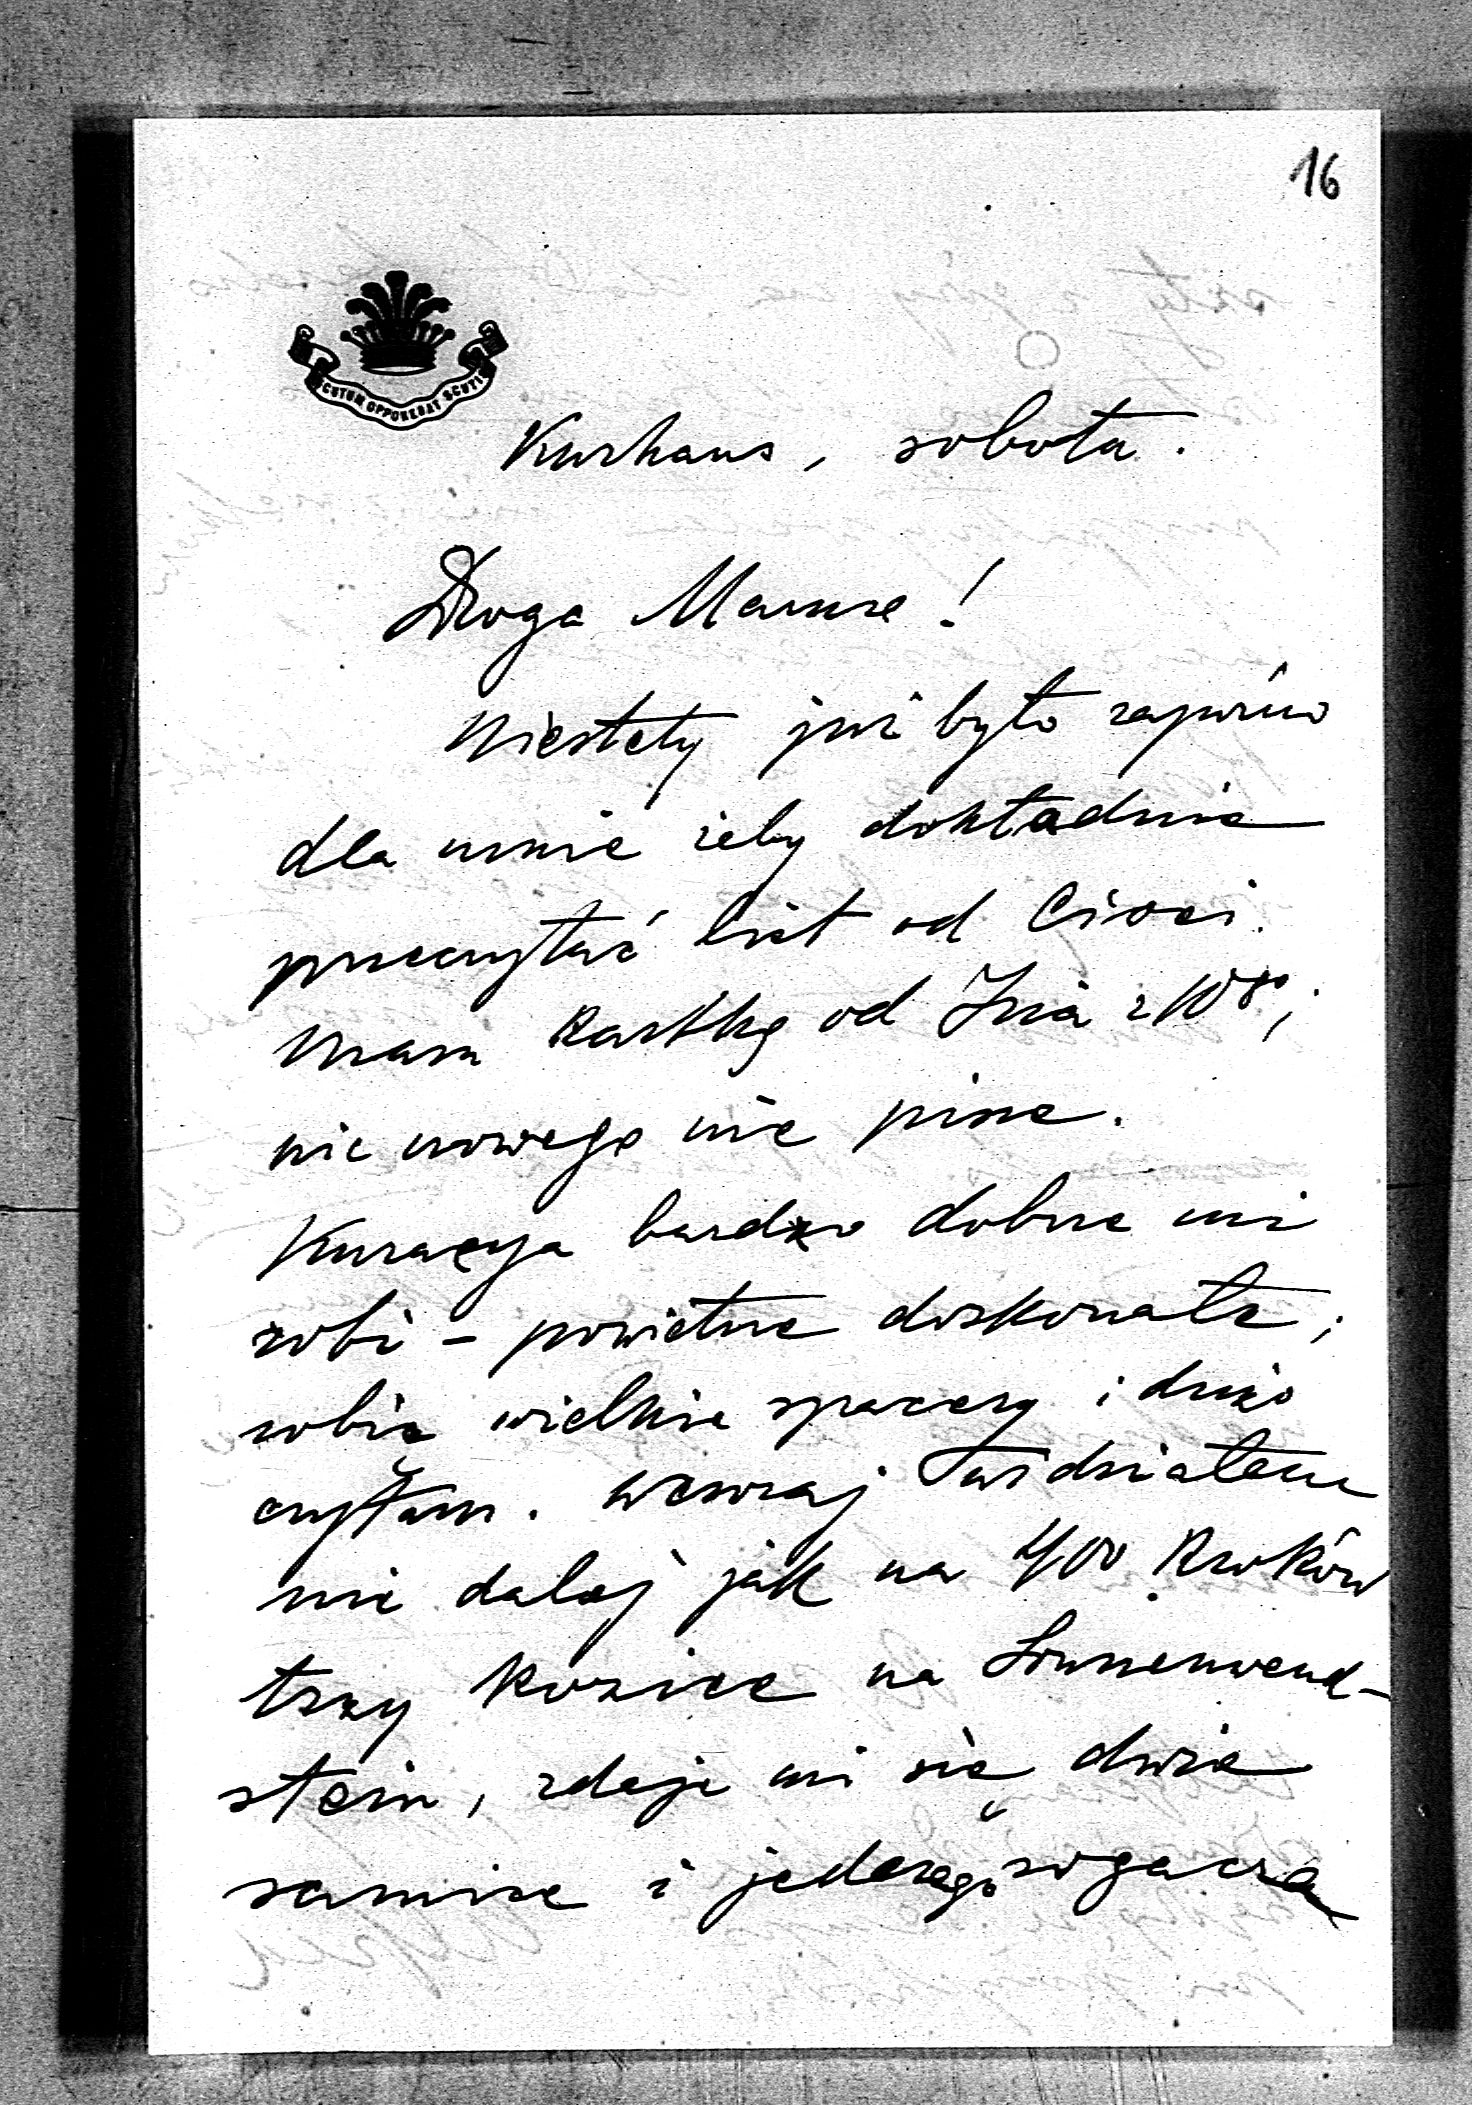 16
SCUTUM OPPONEBAT SCUTIS
Kurhaus, sobota.
Droga Mamme!
Niestety już było zapóźno
dla mnie żeby dokładnie
przeczytać list od Cioci.
Mam kartkę od Izia z 10go;
nic nowego nie pisze.
Kuracya bardzo dobrze mi
robi – powietrze doskonałe;
robię wielkie spacery i dużo
czytam. Wczoraj widziałem
nie dalej jak na 400 kroków
trzy kozice na Sonnenwend-
stein, zdaje mi się dwie
samice i jednego rogacza